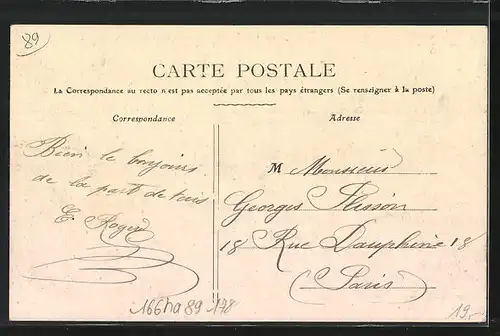 89
CARTE POSTALE
La Correspondance au recto n'est pas acceptée par tous les pays étrangers (Se renseigner à la poste)
Correspondance
Adresse
Bien le bonjour
de la part de tous
E. Roger
M Monsieur
Georges Plisson
18 Rue Dauphine 18
(Paris)
166ha 89 178
19.-